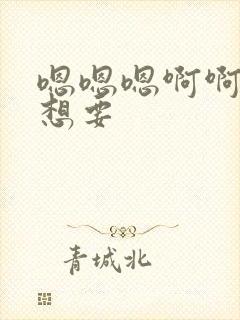 嗯嗯嗯啊啊
想要
青城北